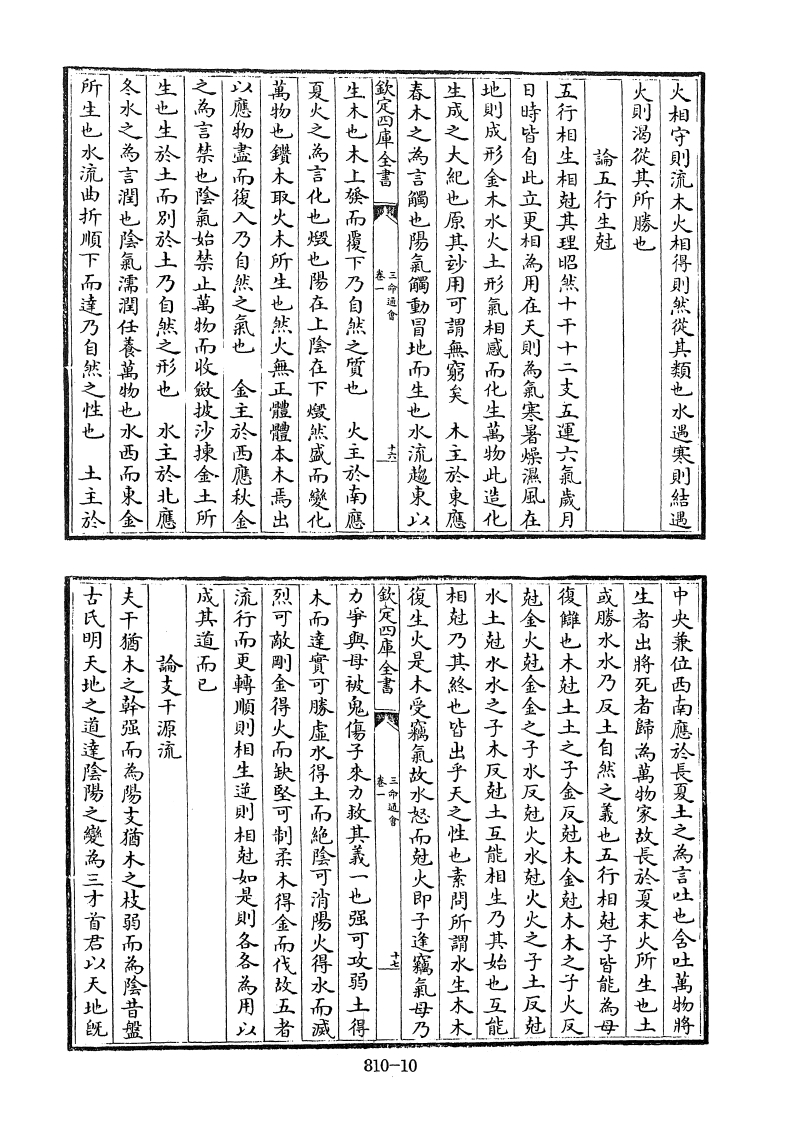 火相守則流木火相得則然從其類也水遇寒則結遇
火則渴從其所勝也
論五行生尅
五行相生相尅其理昭然十干十二支五運六氣歲月
日時皆自此立更相為用在天則為氣寒暑燥濕風在
地則成形金木水火土形氣相感而化生萬物此造化
生成之大紀也原其玅用可謂無窮矣　木主於東應
春木之為言觸也陽氣觸動冒地而生也水流趨東以
欽定四庫全書
三命通會
卷一
十六
生木也木上發而覆下乃自然之質也　火主於南應
夏火之為言化也燬也陽在上陰在下燬然盛而變化
萬物也鑽木取火木所生也然火無正體體本木焉出
以應物盡而復入乃自然之氣也　金主於西應秋金
之為言禁也陰氣始禁止萬物而收斂披沙揀金土所
生也生於土而別於土乃自然之形也　水主於北應
冬水之為言潤也陰氣濡潤任養萬物也水西而東金
所生也水流曲折順下而達乃自然之性也　土主於
中央兼位西南應於長夏土之為言吐也含吐萬物將
生者出將死者歸為萬物家故長於夏末火所生也土
或勝水水乃反土自然之義也五行相尅子皆能為母
復讎也木尅土土之子金反尅木金尅木木之子火反
尅金火尅金金之子水反尅火水尅火火之子土反尅
水土尅水水之子木反尅土互能相生乃其始也互能
相尅乃其終也皆出乎天之性也素問所謂水生木木
復生火是木受竊氣故水怒而尅火即子逢竊氣母乃
欽定四庫全書
三命通會
卷一
十七
力爭與母被鬼傷子來力救其義一也强可攻弱土得
木而達實可勝虛水得土而絶陰可消陽火得水而滅
烈可敵剛金得火而缺堅可制柔木得金而伐故五者
流行而更轉順則相生逆則相尅如是則各各為用以
成其道而已
論支干源流
夫干猶木之幹强而為陽支猶木之枝弱而為陰昔盤
古氏明天地之道達陰陽之變為三才首君以天地旣
810-10